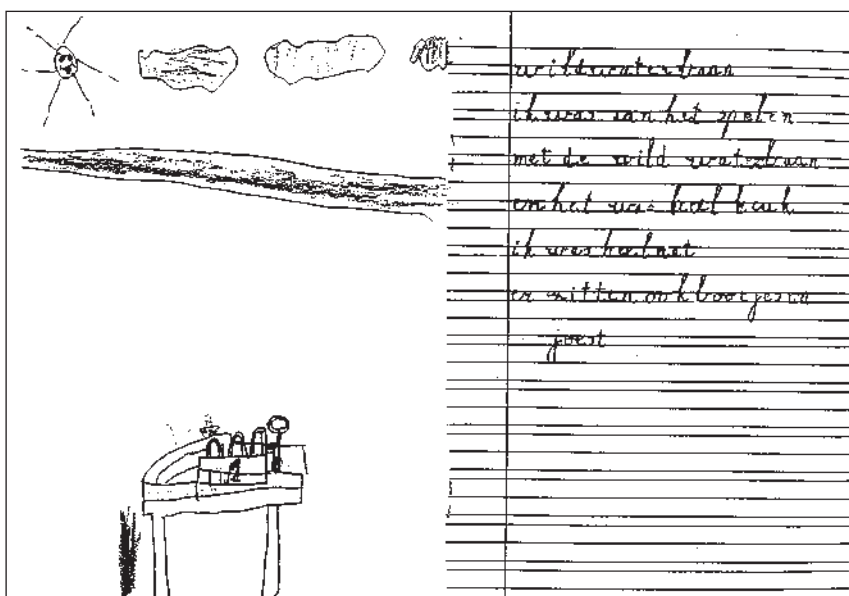 wildwaterbaan
ik was aan het spelen
met de wild waterbaan
en het was heel leuk
ik was heel nat
er zitten ook bootjes in
joost
1